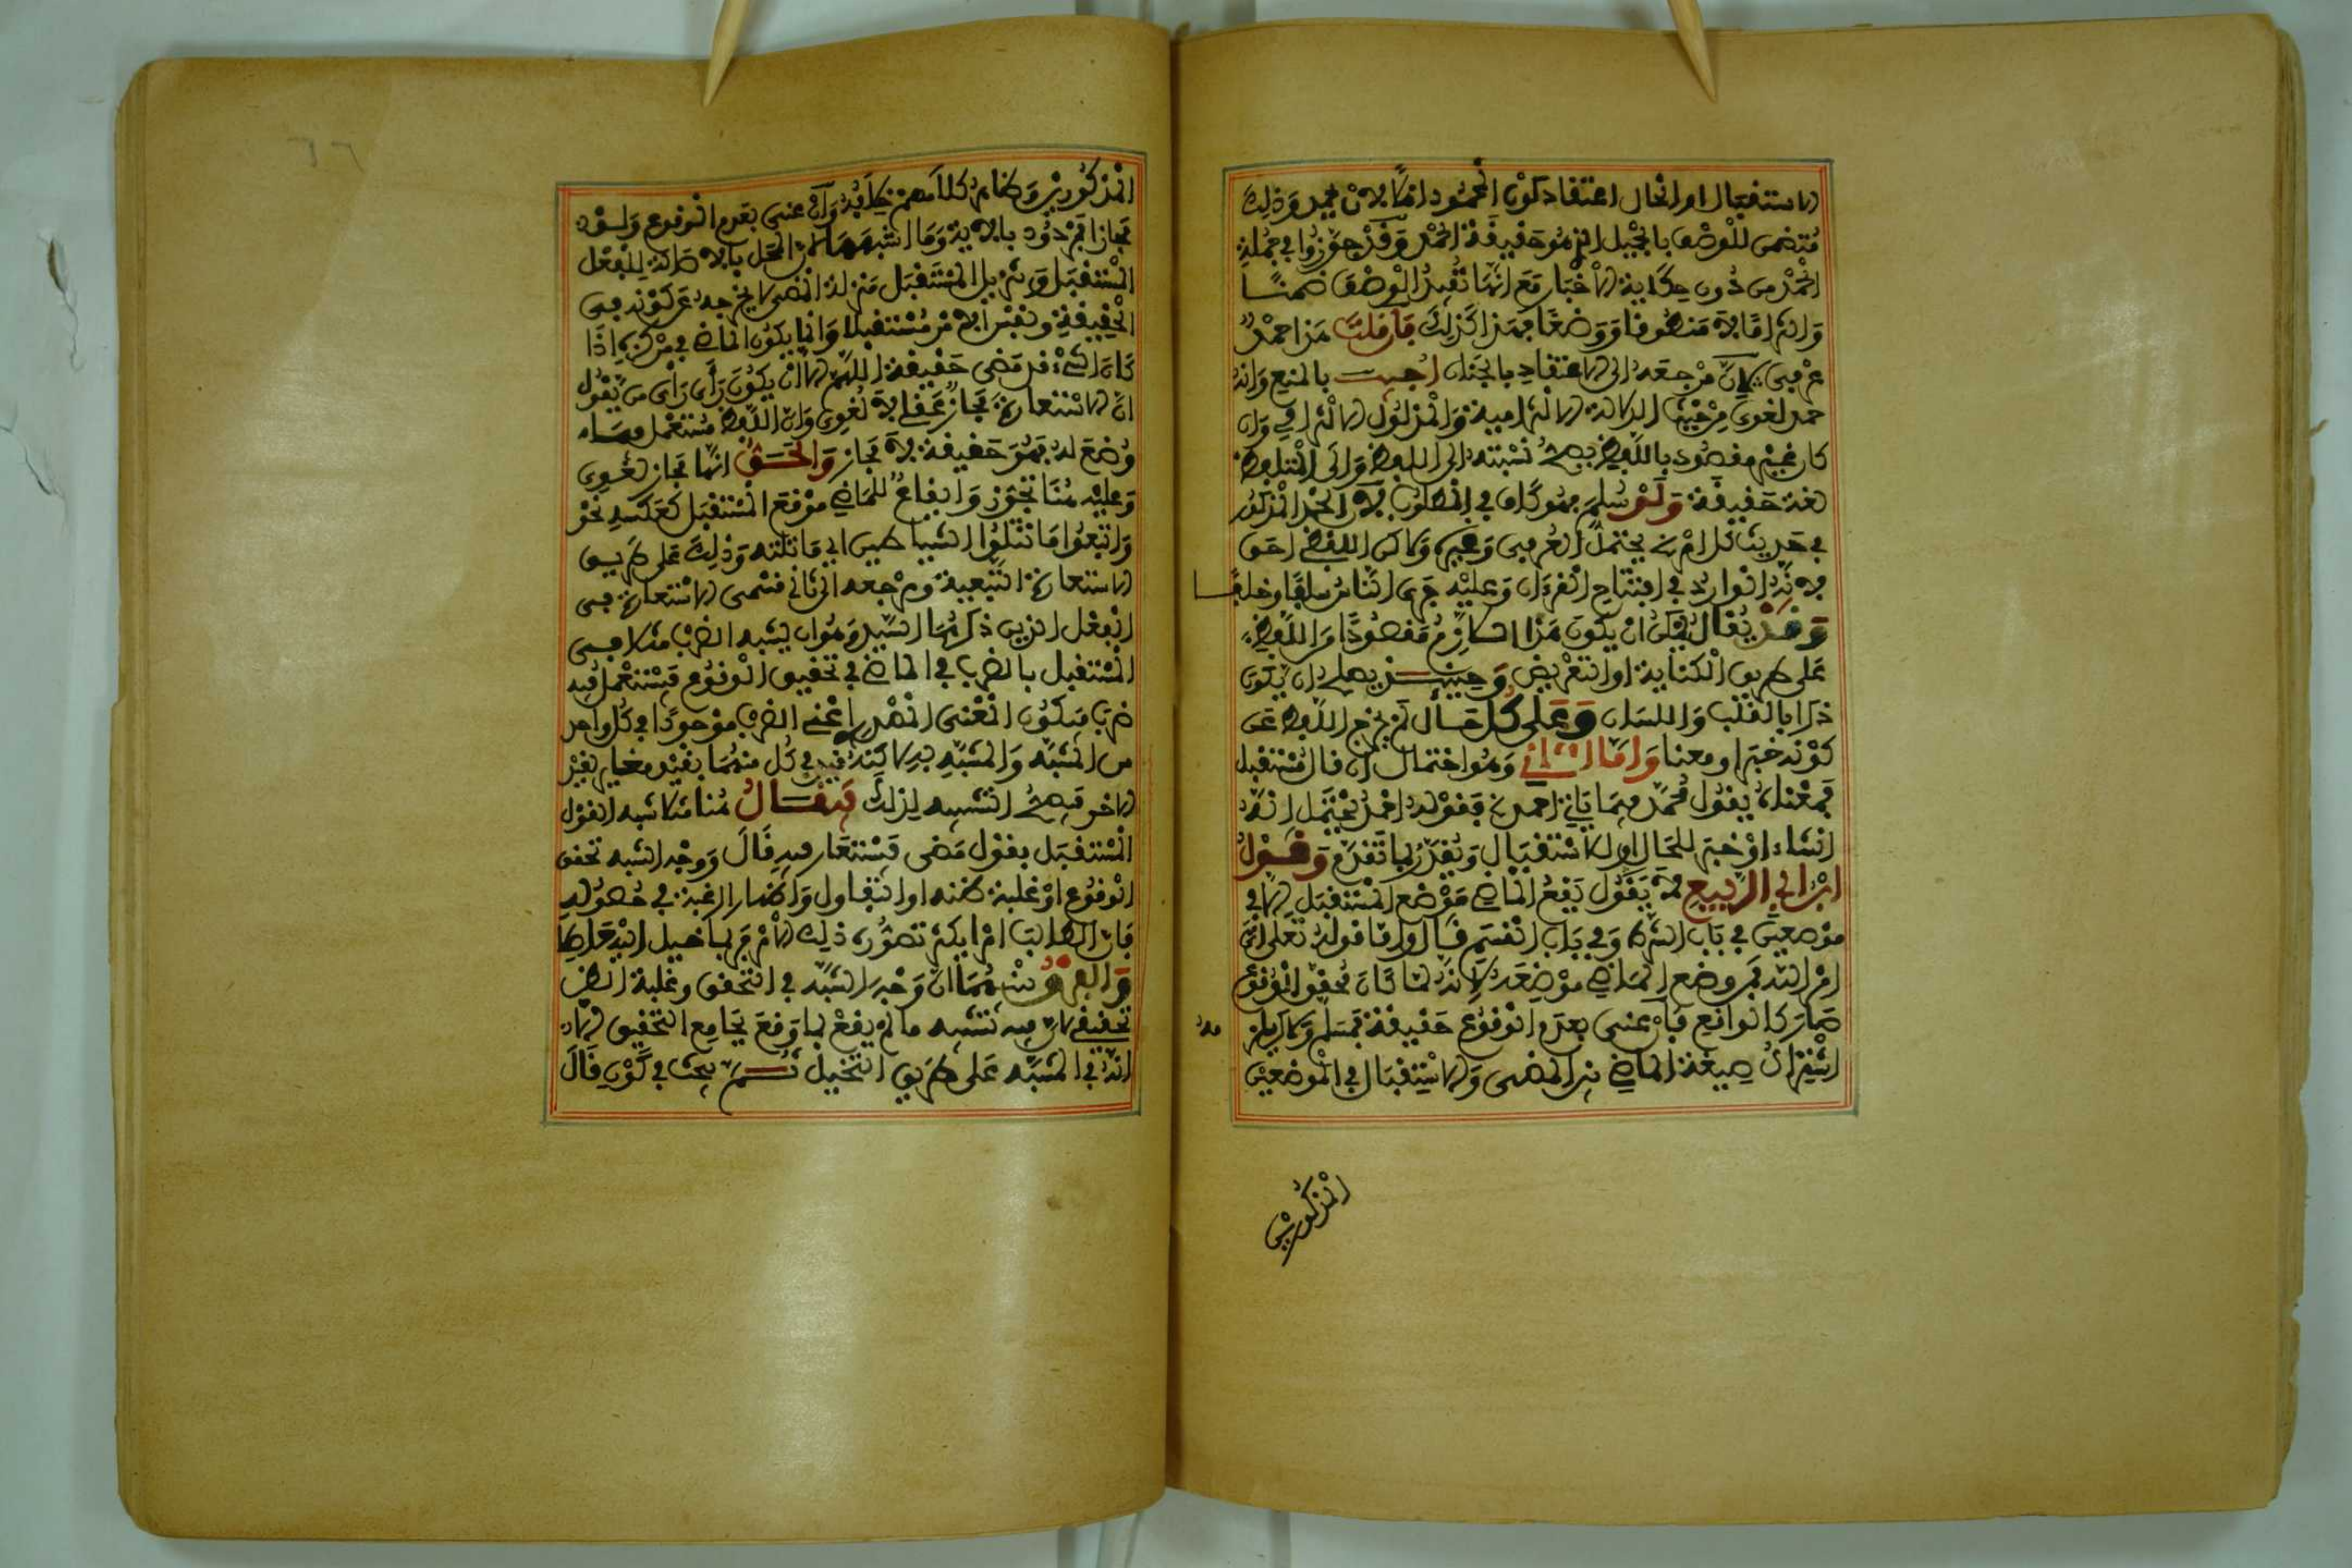 الاستقبال او الحال اعتقاد كون المحمود اهلا لان يحمد وذلك
متضمن للوصف بالجميل الذي هو حقيقة الحمد وقد جوزوا في جملة
الحمد من دون حكاية الاخبار مع انها تفيد الوصف ضمنا
والتزاما لا منطوقا ووضعا فهذا كذلك فان قلت هذا حمد
عرفي لان مرجعه الى الاعتقاد بالجنان اجيب بالمنع وانه
حمد لغوي من حيث الدلالة الالتزامية والمدلول الالتزامي وان
كان غير مقصود باللفظ يصح نسبته الى اللفظ والى المتلفظ
لغة حقيقة ولو سلم فهو كاف في المطلوب لان الحمد المذكور
في حديث كل امر يحتمل العرفي وغيره ولاكن اللفظي احق
لانه الوارد في افتتاح القرءان وعليه جرى الناس سلفا وخلفا
وقد يقال يمكن ان يكون هذا اللازم مقصودا من اللفظ
على طريق الكناية او التعريض وحينئذ يصلح ان يكون
ذكرا بالقلب واللسان وعلى كل حال لم يخرج اللفظ عن
كونه خبرا ومعنا واما الثاني وهو احتمال ان قال مستقبل
فمعناه يقول محمد فيما ياتي احمد فقوله احمد يحتمل انه
انشاء او خبر للحال او للاستقبال ويقدر لما تقدم وقول
ابن ابي الربيع لا يقول يقع الماضي موضع المستقبل الا في
موضعين في باب الشرط وفي باب القسم قال واما قوله تعلى اتى
امر الله فمن وضع الماضي موضعه لانه لما كان محقق الوقوع
صار كالواقع فان عنى بعدم الوقوع حقيقة فمسلم ولاكن لا
اشتراك صيغة الماضي بين المضي والاستقبال في الموضعين
المذكورين
المذكورين وظاهر كلامهم خلافه وان عنى بعدم الوقوع ولو
مجازا فمردود بالاية وما اشبهها لان المحل بالاصالة للفعل
المستقبل وتنزيل المستقبل منزلة المضي لا يخرجه عن كونه في
الحقيقة ونفس الامر مستقبلا وانما يكون الماضي في مركزه اذا
كان الشيء قد مضى حقيقة اللهم الا ان يكون رأى رأي من يقول
ان الاستعارة مجاز عقلي لا لغوي وان اللفظ مستعمل فيما
وضع له فهو حقيقة لا مجاز والحق انها مجاز لغوي
وعليه هنا تجوز وايقاع للماضي موقع المستقبل كعكسه نحو
واتبعوا ما تتلوا الشياطين اي ما تلته وذلك على طريق
الاستعارة التبعية ومرجعه الى ثاني قسمي الاستعارة في
الفعل الذين ذكرهما السيد وهو ان يشبه الضرب مثلا في
المستقبل بالضرب في الماضي في تحقيق الوقوع فيستعمل فيه
ضرب فيكون المعنى المصدر اعني الضرب موجودا في كل واحد
من المشبه والمشبه به لاكنه قيد في كل منهما بقيد مغاير لقيد
الاخر فيصح التشبيه لذلك فيقال هنا مثلا شبه القول
المستقبل بقول مضى فيستعار فيه قال ووجه الشبه تحقق
الوقوع او غلبة ظنه او التفاول واظهار الرغبة في حصوله
فان الطالب امرا يكثر تصوره ذلك الامر فربما خيل اليه حاصلا
والفرق بينهما ان وجه الشبه في التحقق وغلبة الظن
تحقيقي لان فيه تشبيه ما لم يقع بما وقع بجامع التحقيق الا
انه في المشبه على طريق التخيل ثم بحث في كون قال